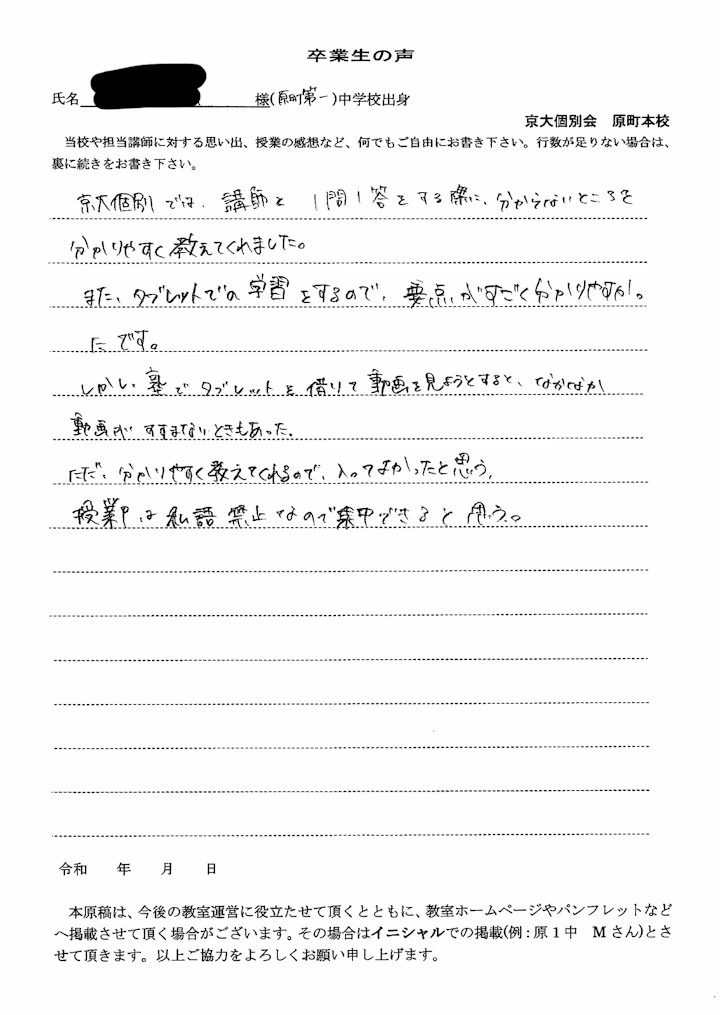 卒業生の声
氏名 様(原町第一)中学校出身
京大個別会 原町本校
当校や担当講師に対する思い出、授業の感想など、何でもご自由にお書き下さい。行数が足りない場合は、
裏に続きをお書き下さい。
京大個別では、講師と1問1答をする際に、分からないところを
分かりやすく教えてくれました。
また、タブレットでの学習をするので、要点がすごく分かりやすかっ
たです。
しかし塾でタブレットを借りて動画を見ようとすると、なかなか
動画がすすまないときもあった。
ただ、分かりやすく教えてくれるので、入ってよかったと思う。
授業中は私語禁止なので集中できると思う。
令和 年 月 日
本原稿は、今後の教室運営に役立たせて頂くとともに、教室ホームページやパンフレットなど
へ掲載させて頂く場合がございます。その場合はイニシャルでの掲載(例:原1中 Mさん)とさ
せて頂きます。以上ご協力をよろしくお願い申し上げます。